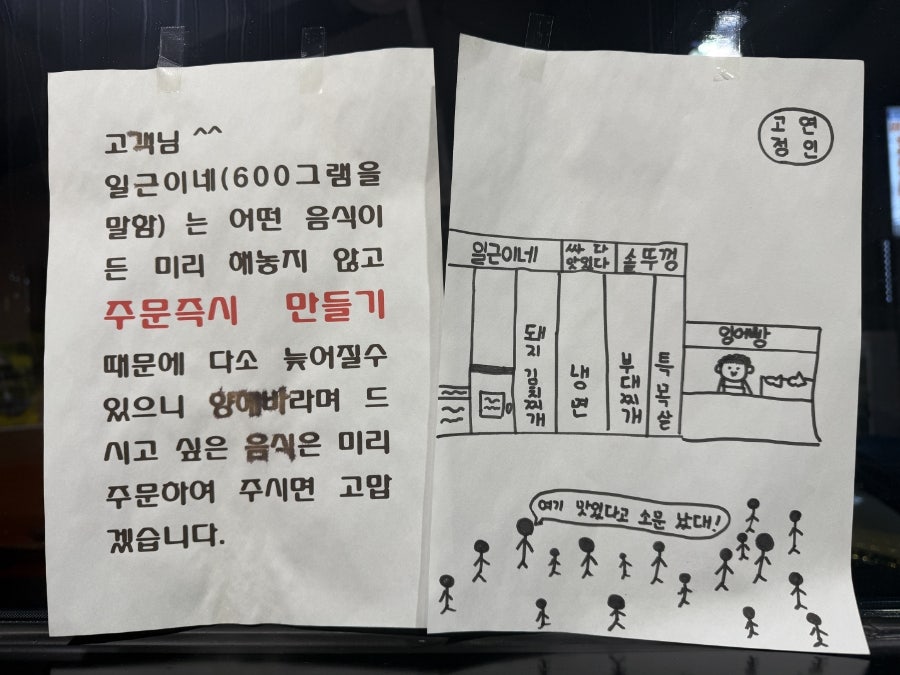 고객님 ^^
일근이네(600그램을
말함) 는 어떤 음식이
든 미리 해놓지 않고
주문즉시 만들기
때문에 다소 늦어질수
있으니 양해바라며 드
시고 싶은 음식은 미리
주문하여 주시면 고맙
겠습니다.
고 연
정 인
일근이네
싸다
맛있다
솥뚜껑
돼지 김치찌개
냉면
부대찌개
특목살
여기 맛있다고 소문 났대!